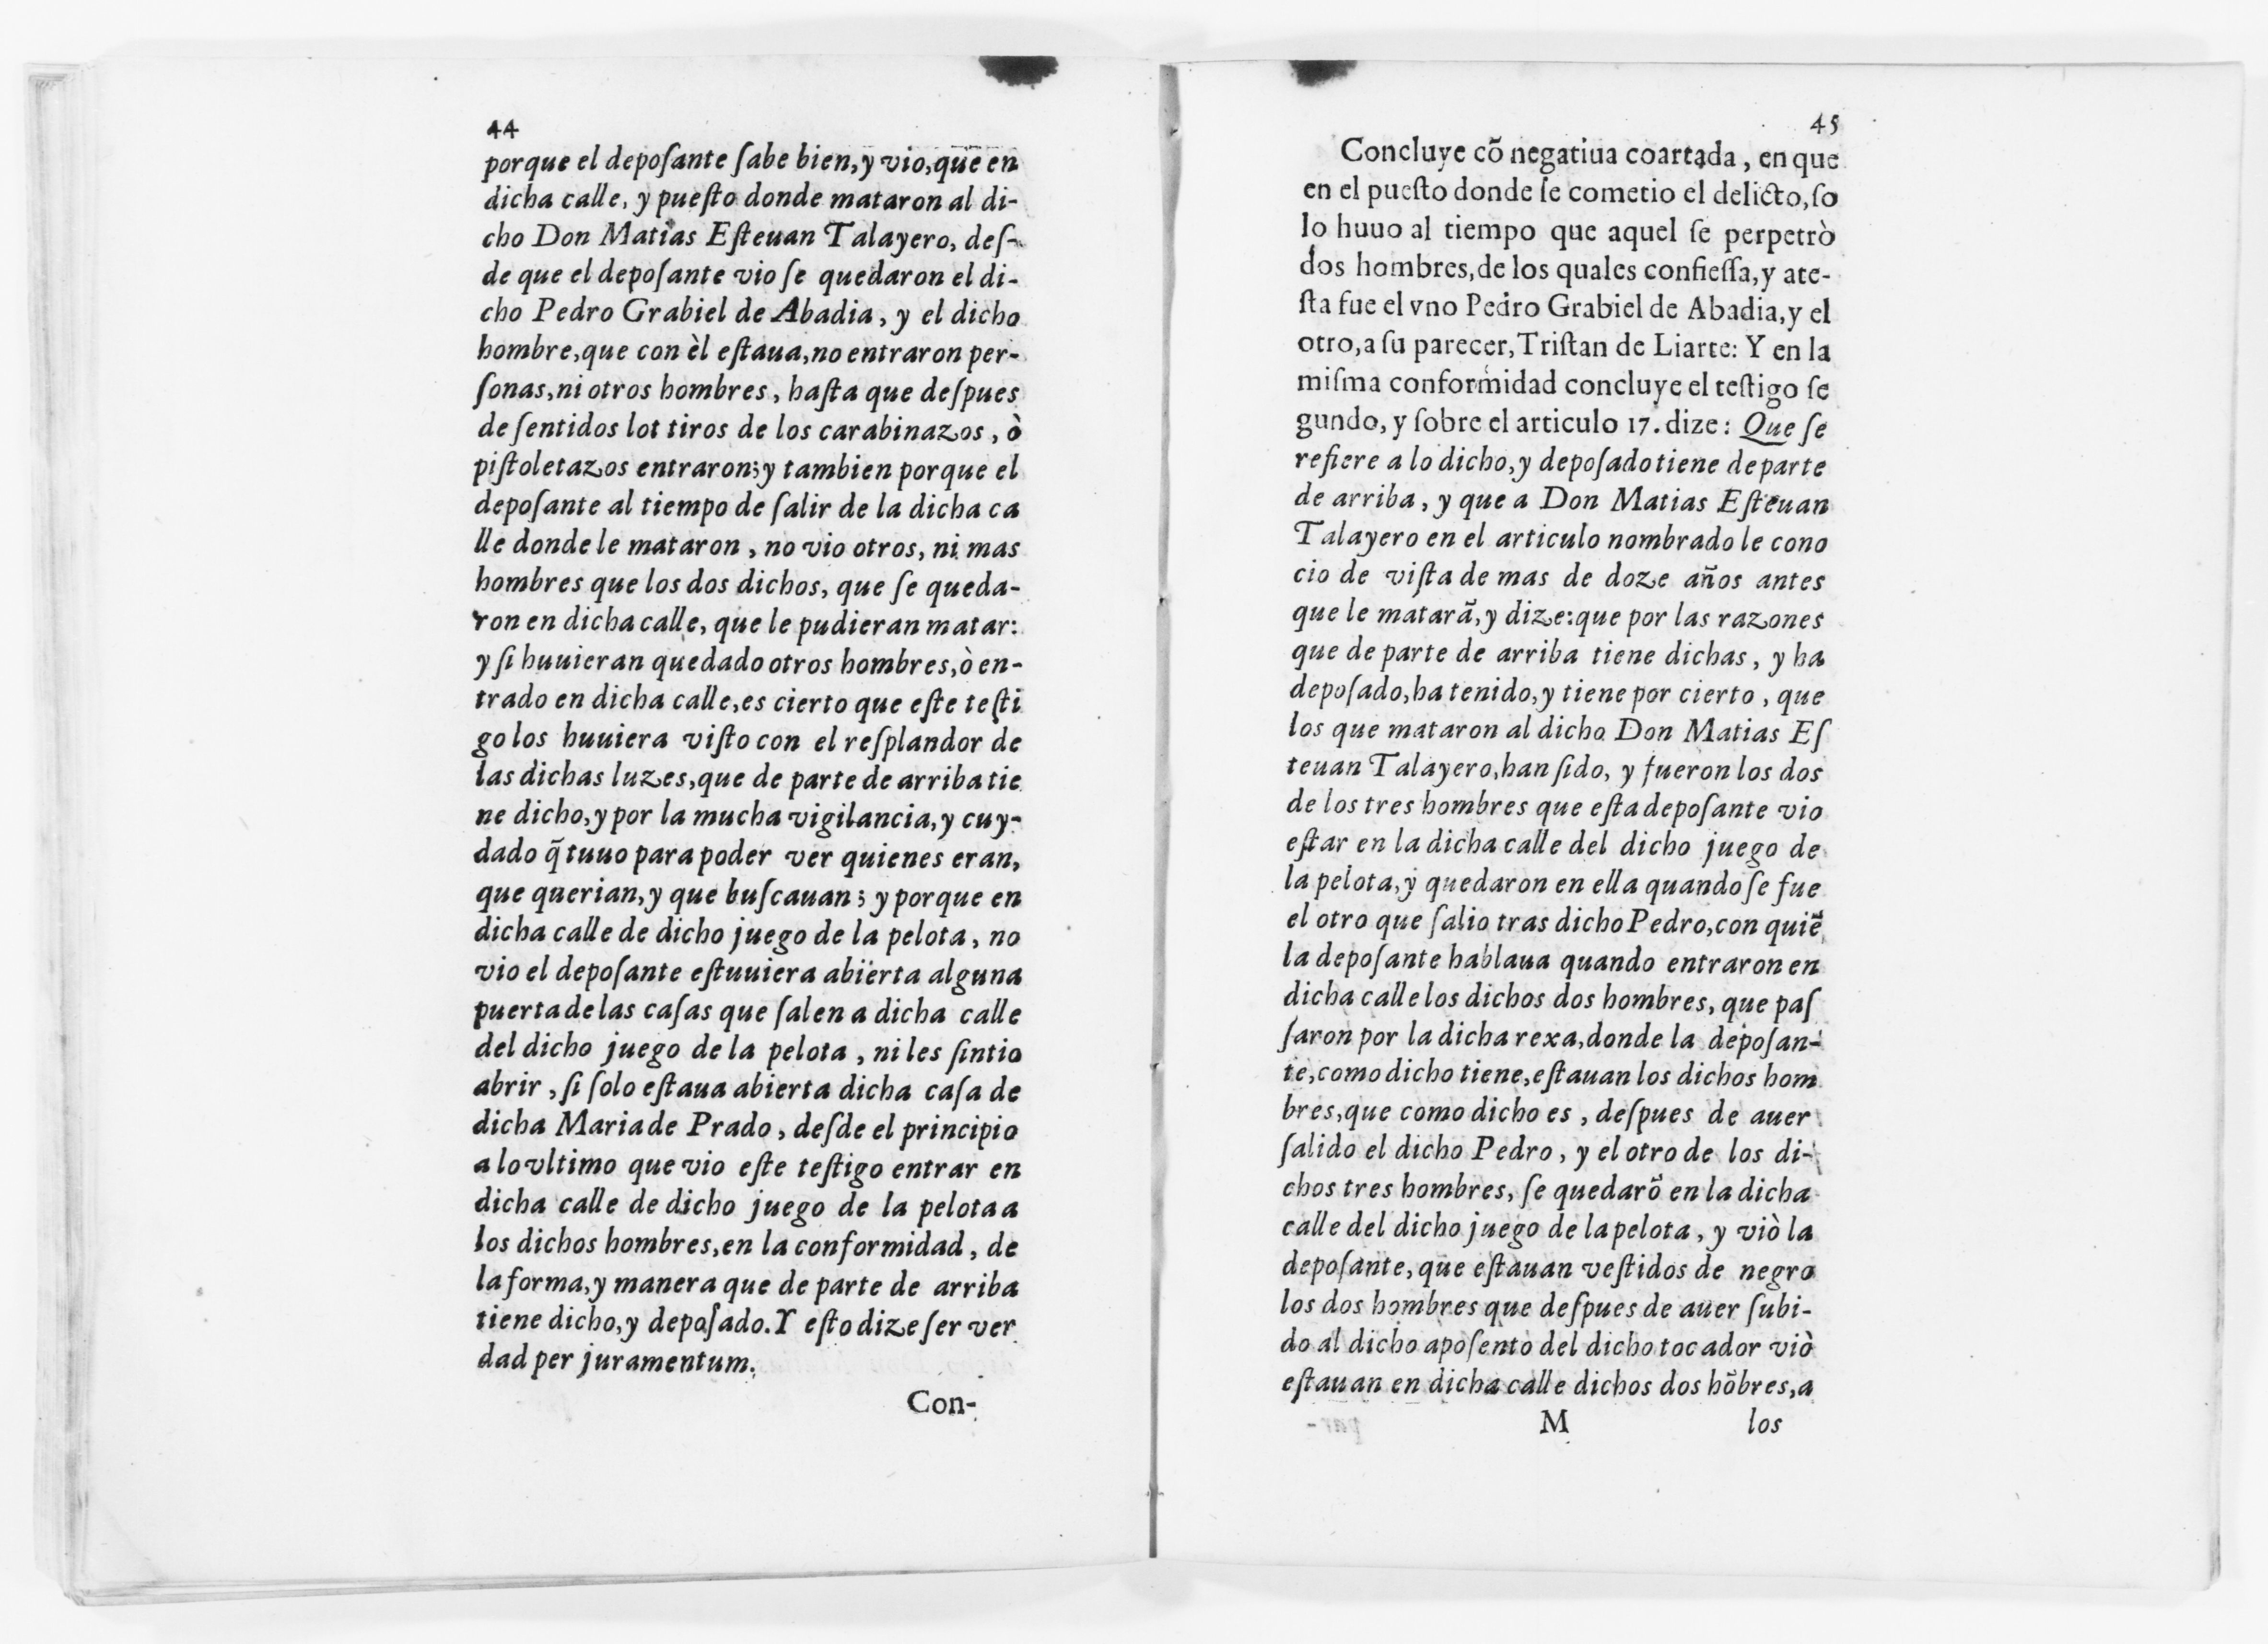 44
porque el depoſante ſabe bien, y vio, que en
dicha calle, y pueſto donde mataron al di-
cho Don Matias Eſteuan Talayero, deſ-
de que el depoſante vio ſe quedaron el di-
cho Pedro Grabiel de Abadia, y el dicho
hombre, que con èl eſtaua, no entraron per-
ſonas, ni otros hombres, haſta que deſpues
de ſentidos lot tiros de los carabinazos, ò
piſtoletazos entraron; y tambien porque el
depoſante al tiempo de ſalir de la dicha ca
lle donde le mataron, no vio otros, ni mas
hombres que los dos dichos, que ſe queda-
ron en dicha calle, que le pudieran matar:
y ſi huuieran quedado otros hombres, ò en-
trado en dicha calle, es cierto que eſte teſti
go los huuiera viſto con el reſplandor de
las dichas luzes, que de parte de arriba tie
ne dicho, y por la mucha vigilancia, y cuy-
dado q̃ tuuo para poder ver quienes eran,
que querian, y que buſcauan; y porque en
dicha calle de dicho juego de la pelota, no
vio el depoſante eſtuuiera abierta alguna
puerta de las caſas que ſalen a dicha calle
del dicho juego de la pelota, ni les ſintio
abrir, ſi ſolo eſtaua abierta dicha caſa de
dicha Maria de Prado, deſde el principio
a lo vltimo que vio eſte teſtigo entrar en
dicha calle de dicho juego de la pelota a
los dichos hombres, en la conformidad, de
la forma, y manera que de parte de arriba
tiene dicho, y depoſado. Y eſto dize ſer ver
dad per juramentum.
Con-
45
Concluye cõ negatiua coartada, en que
en el pueſto donde ſe cometio el delicto, ſo
lo huuo al tiempo que aquel ſe perpetrò
dos hombres, de los quales confieſſa, y ate-
ſta fue el vno Pedro Grabiel de Abadia, y el
otro, a ſu parecer, Triſtan de Liarte: Y en la
miſma conformidad concluye el teſtigo ſe
gundo, y ſobre el articulo 17. dize: Que ſe
refiere a lo dicho, y depoſado tiene de parte
de arriba, y que a Don Matias Eſteuan
Talayero en el articulo nombrado le cono
cio de viſta de mas de doze años antes
que le matarã, y dize: que por las razones
que de parte de arriba tiene dichas, y ha
depoſado, ha tenido, y tiene por cierto, que
los que mataron al dicho Don Matias Eſ
teuan Talayero, han ſido, y fueron los dos
de los tres hombres que eſta depoſante vio
eſtar en la dicha calle del dicho juego de
la pelota, y quedaron en ella quando ſe fue
el otro que ſalio tras dicho Pedro, con quiẽ
la depoſante hablaua quando entraron en
dicha calle los dichos dos hombres, que paſ
ſaron por la dicha rexa, donde la depoſan-
te, como dicho tiene, eſtauan los dichos hom
bres, que como dicho es, deſpues de auer
ſalido el dicho Pedro, y el otro de los di-
chos tres hombres, ſe quedarõ en la dicha
calle del dicho juego de la pelota, y viò la
depoſante, que eſtauan veſtidos de negro
los dos hombres que deſpues de auer ſubi-
do al dicho apoſento del dicho tocador viò
eſtauan en dicha calle dichos dos hõbres, a
M los